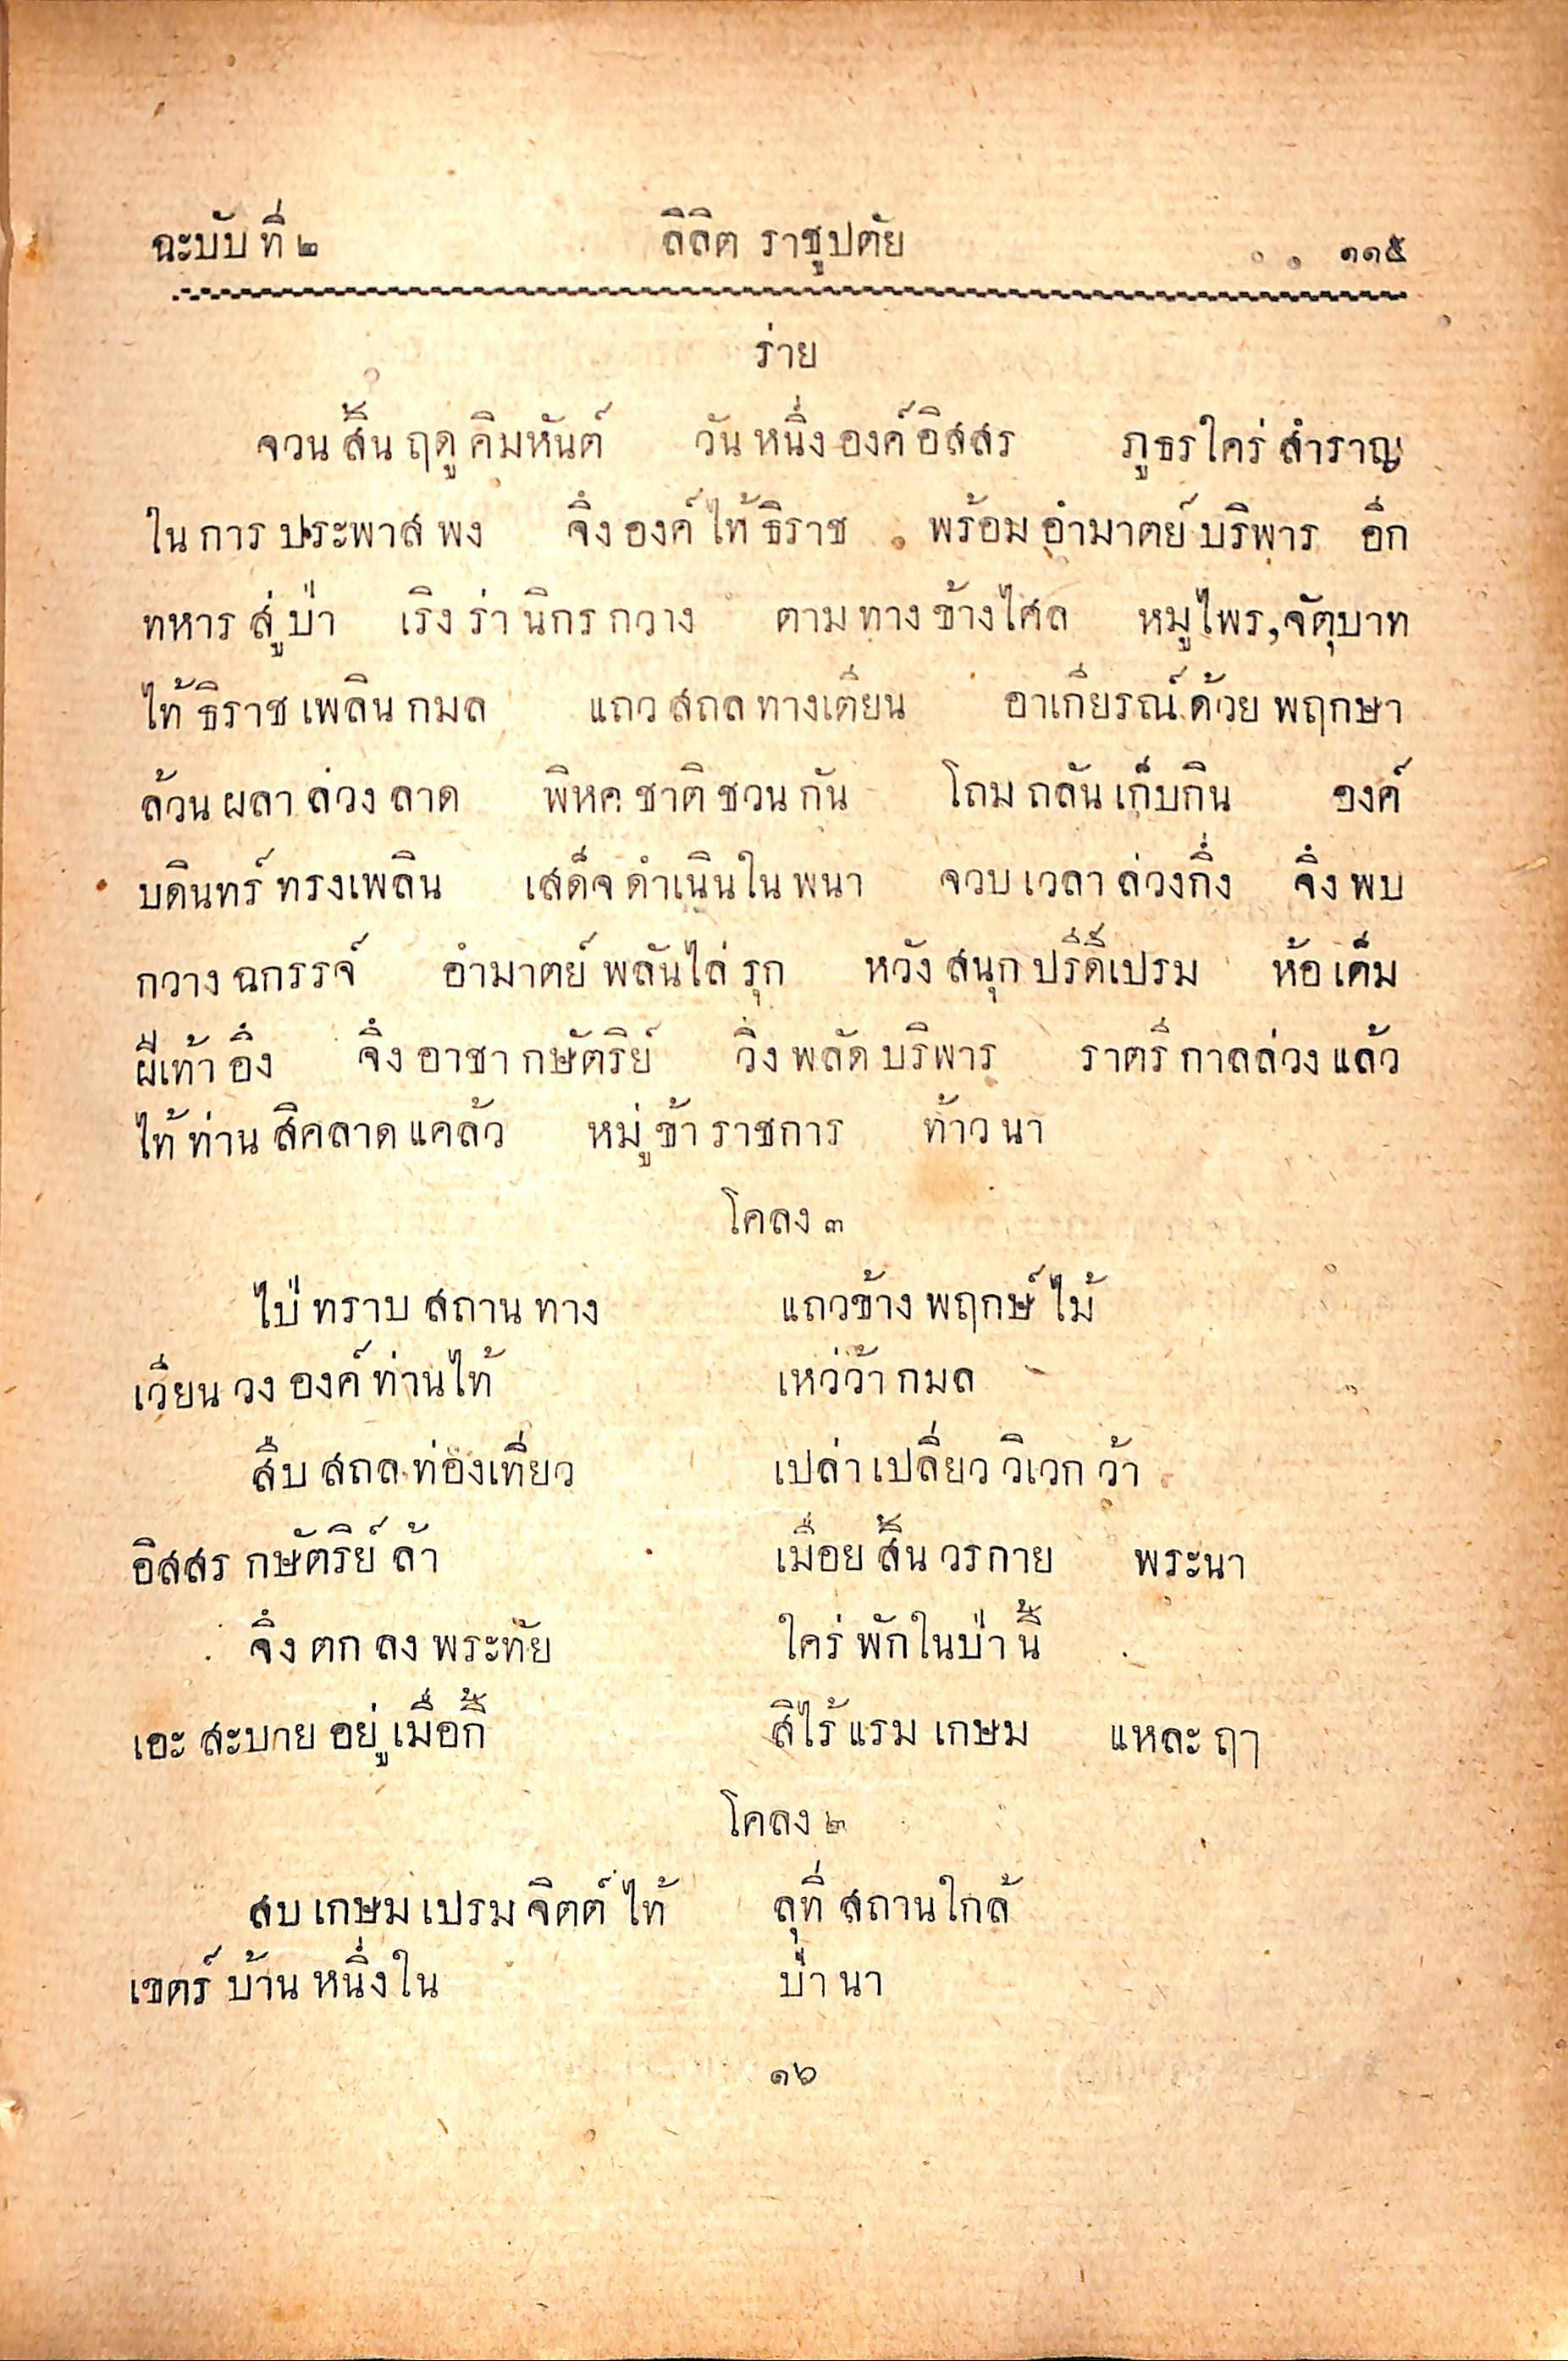 ฉะบับ ที่ ๒ ลิลิต ราชูปตัย ๑๑๕
ร่าย
จวน สิ้น ฤดู คิมหันต์ วัน หนึ่ง องค์ อิสสร ภูธร ใคร่ สำราญ
ใน การ ประพาส พง จึ่ง องค์ ไท้ ธิราช พร้อม อำมาตย์ บริพาร อีก
ทหาร สู่ ป่า เริง ร่า นิกร กวาง ตาม ทาง ข้าง ไศล หมู ไพร, จัตุบาท
ไท้ ธิราช เพลิน กมล แถว สถล ทางเตียน อาเกียรณ์ ด้วย พฤกษา
ล้วน ผลา ล่วง ลาด พิหค ชาติ ชวน กัน โถม ถลัน เก็บกิน องค์
บดินทร์ ทรงเพลิน เสด็จ ดำเนินใน พนา จวบ เวลา ล่วงกึ่ง จึ่ง พบ
กวาง ฉกรรจ์ อำมาตย์ พลันไล่ รุก หวัง สนุก ปรีดิ์เปรม ห้อ เค็ม
ผีเท้า อึ่ง จึ่ง อาชา กษัตริย์ วิ่ง พลัด บริพาร ราตรี กาลล่วง แล้ว
ไท้ ท่าน สิคลาด แคล้ว หมู่ ข้า ราชการ ท้าว นา
โคลง ๓
ไป่ ทราบ สถาน ทาง แถวข้าง พฤกษ์ ไม้
เวียน วง องค์ ท่านไท้ เหว่ว้า กมล
สืบ สถล ท่องเที่ยว เปล่า เปลี่ยว วิเวก ว้า
อิสสร กษัตริย์ ล้า เมื่อย สิ้น วรกาย พระนา
จึ่ง ตก ลง พระทัย ใคร่ พักในป่า นี้
เอะ สะบาย อยู่ เมื่อกี้ สิไร้ แรม เกษม แหละ ฤๅ
โคลง ๒
สบ เกษม เปรม จิตต์ ไท้ ลุที่ สถานใกล้
เขตร์ บ้าน หนึ่งใน ป่า นา
๑๖